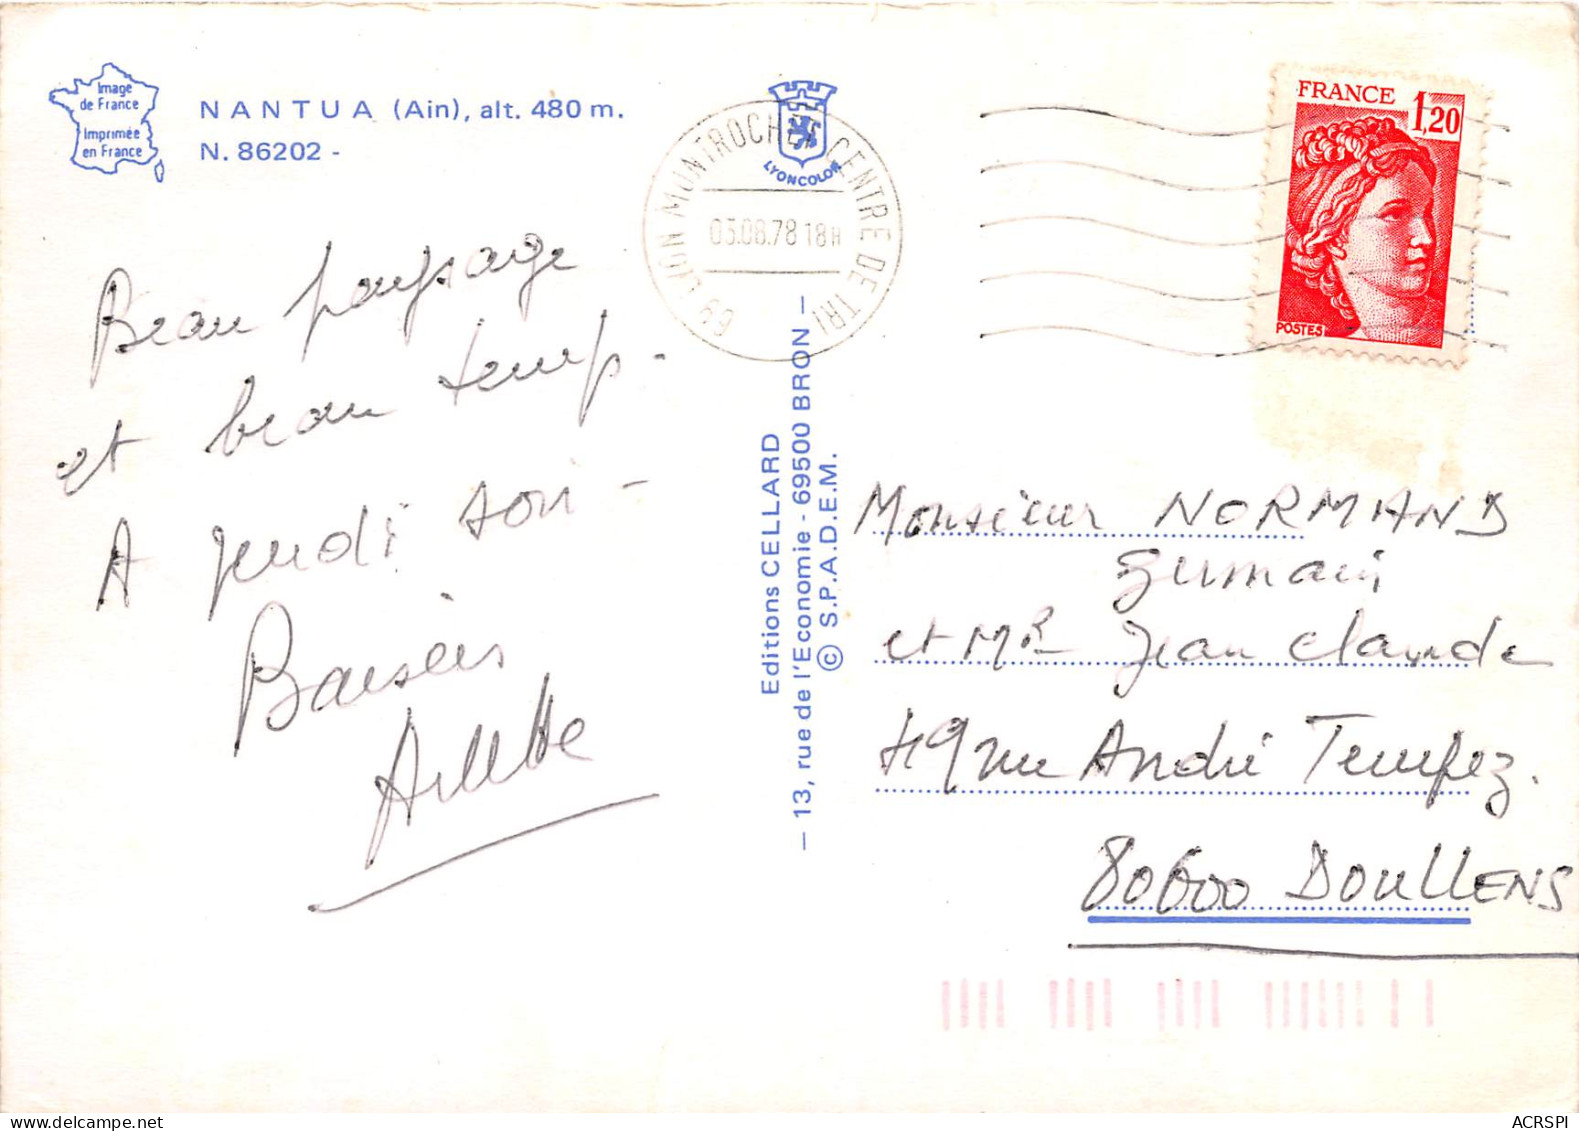 Image
de France
Imprimée
en France
NANTUA (Ain), alt. 480 m.
N. 86202 -
LYONCOLOR
69 LYON MONTROCHET CENTRE DE TRI
03.08.78 18H
FRANCE 1,20
POSTES
Beau paysage
et beau temps -
A jeudi soir -
Baisers
Arlette
Editions CELLARD
— 13, rue de l'Economie - 69500 BRON —
© S.P.A.D.E.M.
Monsieur NORMAND
Germain
et MR Jean Claude
49 rue André Tempez.
80600 DOULLENS
ACRSPI